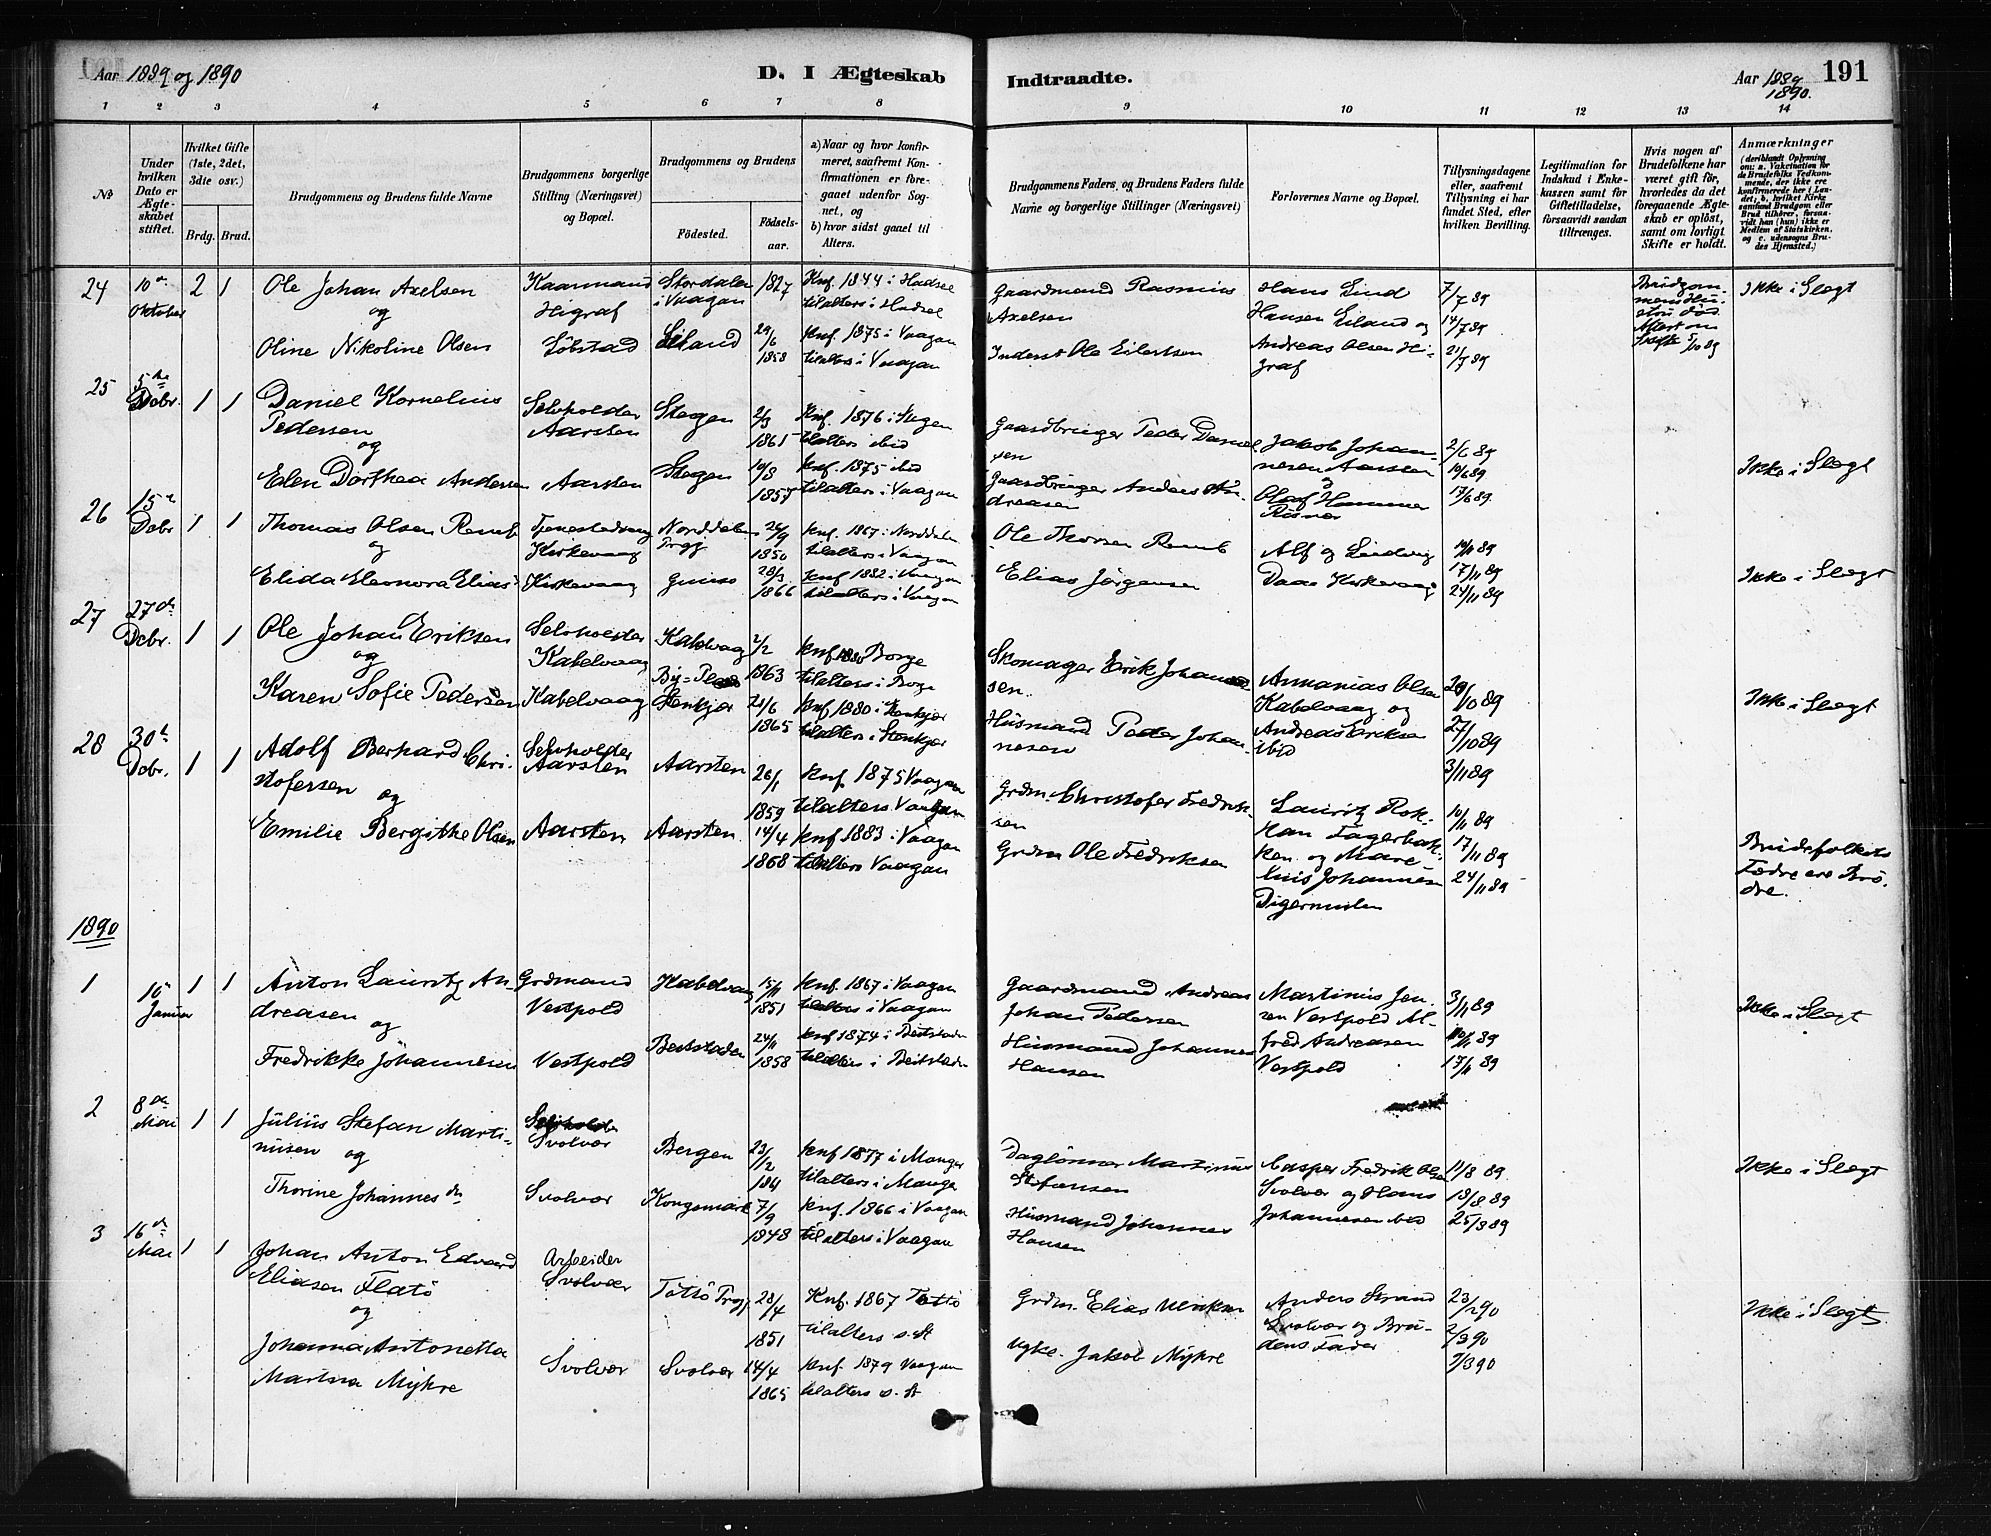 Aar 1889 og 1890
D. I Ægteskab
Indtraadte.
Aar 1889
1890.
191
1 2 3 4 5 6 7 8 9 10 11 12 13 14
No
Under hvilken Dato er Ægteskabet stiftet.
Hvilket Gifte (1ste, 2det, 3dte osv.)
Brdg. Brud.
Brudgommens og Brudens fulde Navne
Brudgommens borgerlige Stilling (Næringsvei) og Bopæl.
Brudgommens og Brudens
Fødested.
Fødselsaar.
a) Naar og hvor konfirmeret, saafremt Konfirmationen er foregaaet udenfor Sognet, og
b) hvor sidst gaaet til Alters.
Brudgommens Faders, og Brudens Faders fulde Navne og borgerlige Stillinger (Næringsvei)
Forlovernes Navne og Bopæl.
Tillysningsdagene eller, saafremt Tillysning ei har fundet Sted, efter hvilken Bevilling.
Legitimation for Indskud i Enkekassen samt for Giftetilladelse, forsaavidt saadan tiltrænges.
Hvis nogen af Brudefolkene har været gift før, hvorledes da det foregaaende Ægteskab er opløst, samt om lovligt Skifte er holdt.
Anmærkninger
24 10de Oktober 2 1
Ole Johan Axelsen
og
Oline Nikoline Olsen
Kaarmand
Higraf
Løbstad
Stordalen i Vaagan
Eiland
1827
29/6 1858
Knf. 1844 i Hadsel
tilalters i Hadsel
Knf. 1875 i Vaagan
tilalters i Vaagan
Gaardmand Rasmus
Axelsen
Inderst Ole Eilertsen
Hans Lind
Hansen Eiland og
Andreas Olsen Higraf
7/7 89
14/7 89
21/7 89
Ikke i Slegt
25 5te Dcbr. 1 1
Daniel Kornelius
Pedersen
og
Elen Dorthea Andersen
Selvholder
Aarsten
Aarsten
Stegen
Stegen
2/3 1861
10/3 1857
Knf. 1876 i Stegen
tilalters ibid
Knf. 1875 ibid
tilalters i Vaagan
Gaardbruger Peder Danielsen
Gaardbruger Anders Andreasen
Jakob Johannesen Aarsten
Olaf Hammer
Risvær
2/6 89
10/6 89
17/6 89
Ikke i Slegt
26 15de Dcbr 1 1
Thomas Olsen Remb
og
Elida Eleonora Elias
Tjenestedreng
Kirkevaag
Kirkevaag
Norddalen
Prgj
26/9 1850
28/3 1866
Knf. 1867 i Norddalen
tilalters i Vaagan
Knf 1882 i Vaagan
tilalters i Vaagan
Ole Thorsen Remb
Elias Jørgensen
Alf og Ludvig
Daae Kirkevaag
10/11 89
17/11 89
24/11 89
Ikke i Slegt
27 27de Dcbr. 1 1
Ole Johan Eriksen
og
Karen Sofie Pedersen
Selvholder
Kabelvaag
Kabelvaag
Kabelvaag
Stenkjær
2/2 1863
21/6 1865
knf 1880 Borge
tilalters i Borge
knf 1880 i Stenkjær
tilalters i Stenkjær
Skomager Erik Johansen.
Husmand Peder Johannesen
Annanias Olsen
Kabelvaag og
Andreas Eriksen
ibid
20/10 89
27/10 89
3/11 89
Ikke i Slegt
28 30te Dcbr. 1 1
Adolf Berhard Christofersen
og
Emilie Bergithe Olsen
Selvholder
Aarsten
Aarsten
Aarsten
Aarsten
26/1 1859
14/4 1868
Knf 1875 Vaagan
tilalters Vaagan
Knf 1883 i Vaagan
tilalters Vaagan
Grdm. Christofer Fredriksen
Grdm Ole Fredriksen
Lauritz Rokkan Fagerbakken og Marelius Johannesen
Digermulen
10/11 89
17/11 89
24/11 89
Brudefolkets
Fædre ere Brødre.
1890
1 15 Januar 1 1
Anton Lauritz Andreasen
og
Fredrikke Johannesen
Grdmand
Vestpold
Vestpold
Kabelvaag
Beitstaden
15/11 1851
24/11 1858
Knf. 1867 i Vaagan
tilalters i Vaagan
Knf 1874 i Beitstaden
tilalters i Beitstaden
Gaardmand Andreas
Johan Pedersen
Husmand Johannes
Hansen
Martinus Jensen Vestpold Alfred Andreasen
Vestpold
3/11 89
10/11 89
17/11 89
Ikke i Slegt
2 8de Mai 1 1
Julius Stefan Martinusen og
Thorine Johannesdn
Svolvær
Svolvær
Bergen
Kongsmark
23/12
7/9 1848
Knf 1877 i Manger
tilalters i Manger
Knf. 1866 i Vaagan
tilalters i Vaagan
Daglønner Martinus
Stefansen
Husmand Johannes
Hansen
Casper Fredrik Olsen
Svolvær og Hans
Johannesen ibid
11/8 89
18/8 89
25/8 89
Ikke i Slegt
3 16de Mai 1 1
Johan Anton Edvard
Eliasen Flatø
og
Johanna Antonetta
Martina Myhre
Arbeider
Svolvær
Svolvær
Tøttø Prgj
Svolvær
28/4 1851
14/4 1865
Knf. 1867 Tøttø
tilalters s. St
Knf. 1879 Vaagan
tilalters s. St
Grdm. Elias
Jakob Myhre
Anders Strand
Svolvær og Brudens Fader
23/2 90
2/3 90
9/3 90
Ikke i Slegt